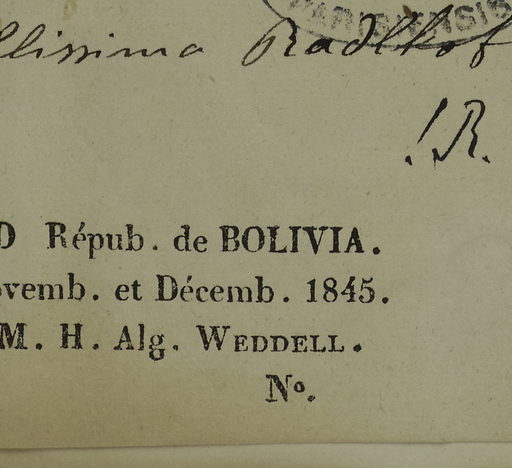 PARISIENSIS
llissima Radlkof
! R.
D Répub. de BOLIVIA.
ovemb. et Décemb. 1845.
M. H. Alg. WEDDELL.
No.